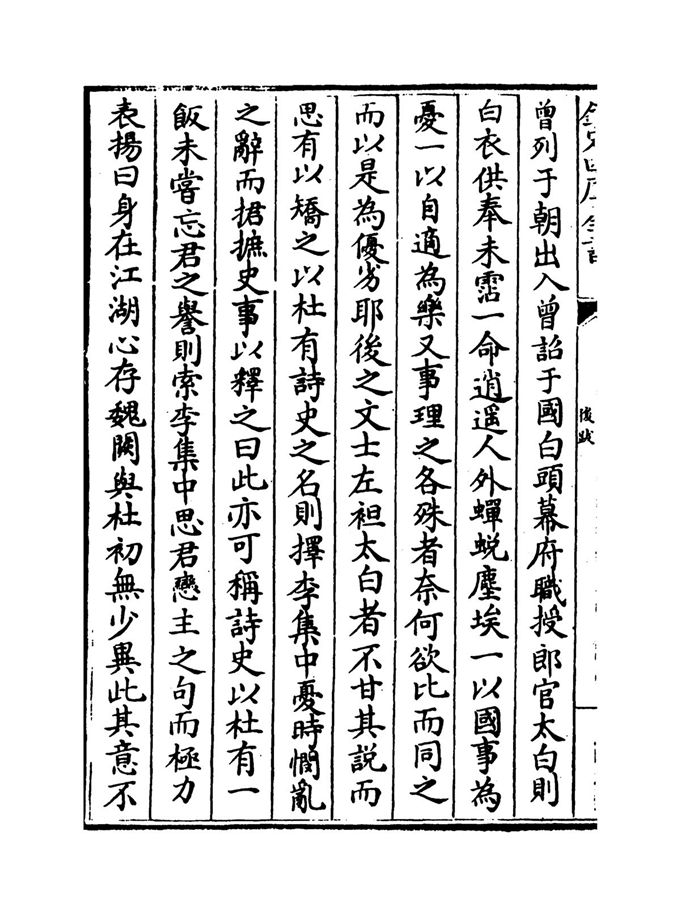 後跋
曽列于朝出入曽詔于國白頭幕府職授郎官太白則
白衣供奉未霑一命逍遥人外蟬蜕塵埃一以國事為
憂一以自適為樂又事理之各殊者奈何欲比而同之
而以是為優劣耶後之文士左袒太白者不甘其説而
思有以矯之以杜有詩史之名則擇李集中憂時憫亂
之辭而捃摭史事以釋之曰此亦可稱詩史以杜有一
飯未嘗忘君之譽則索李集中思君戀主之句而極力
表揚曰身在江湖心存魏闕與杜初無少異此其意不